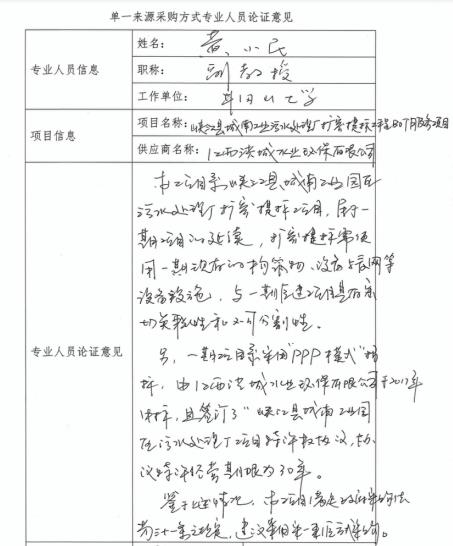 单一来源采购方式专业人员论证意见
专业人员信息
姓名：
黄小民
职称：
副教授
工作单位：
井冈山大学
项目信息
项目名称：峡江县城南工业污水处理厂扩容提标工程BOT服务项目
供应商名称：江西洪城水业环保有限公司
专业人员论证意见
本项目系峡江县城南工业园区
污水处理厂扩容提标项目，属于一
期项目的延续，扩容提标需使
用一期现有的构筑物、设备、管网等
设备设施，与一期在建项目具有密
切关联性和不可分割性。
另，一期项目系采用"PPP模式"招
标，由江西洪城水业环保有限公司于2017年
中标，且签订了"峡江县城南工业园
区污水处理厂项目特许权协议，协
议特许经营期限为30年。
鉴于上述情况，本项目满足政府采购法
第三十一条之规定，建议采用单一来源方式采购。